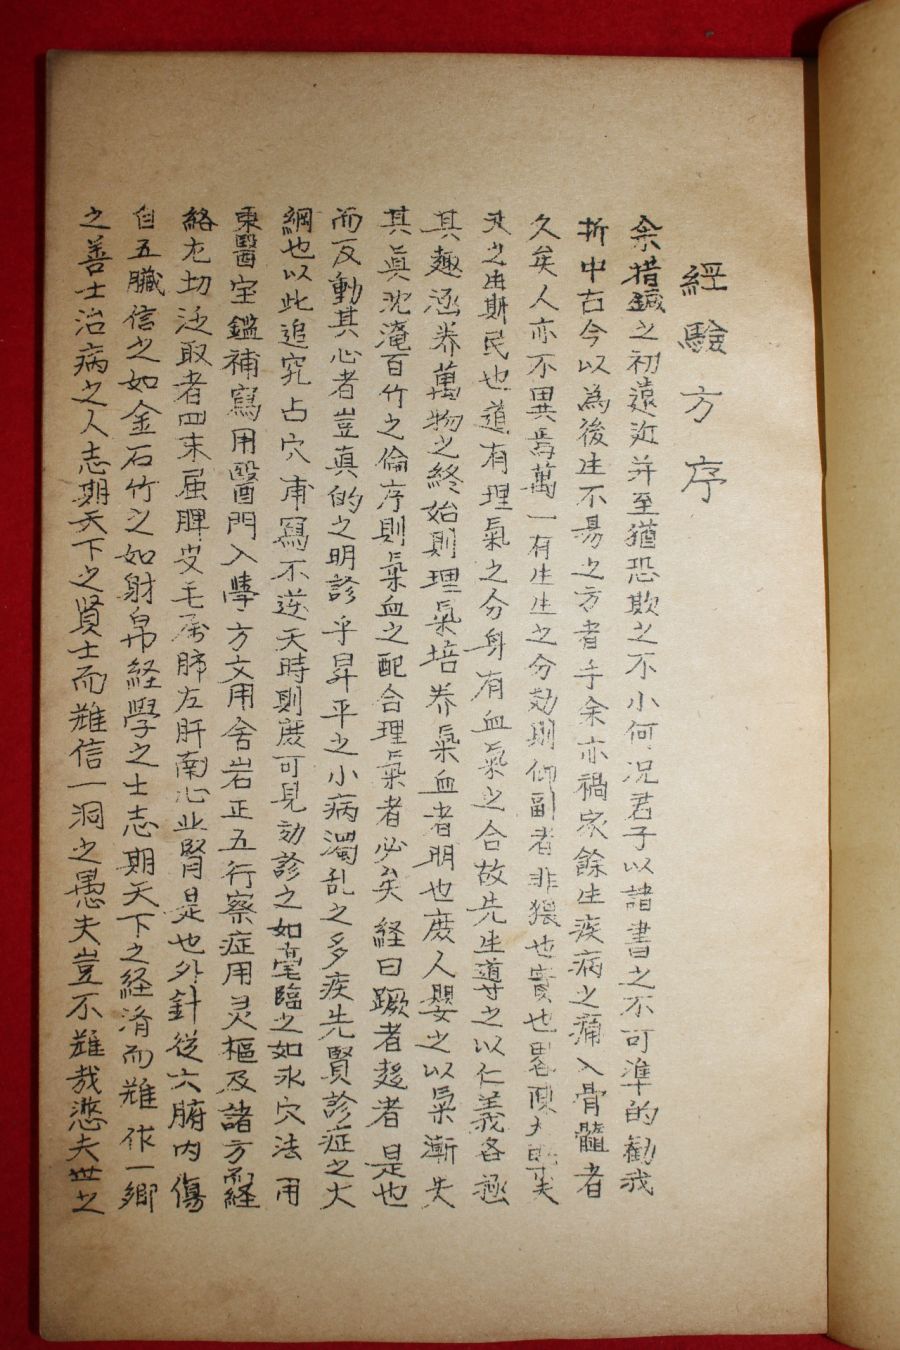 經驗方序
余措鍼之初遠近并至猶恐欺之不小何况君子以諸書之不可準的勸我
折中古今以為後生不易之方者乎余亦禍家餘生疾病之痛入骨髓者
久矣人亦不異焉萬一有生生之分効則仰副者非猥也實也畧陳大
天之出斯民也道有理氣之分身有血氣之合故先生導之以仁義各極
其趣涵养萬物之終始則理氣培养氣血者明也庶人嬰之以氣漸失
其眞沈淹百竹之倫序則氣血之配合理氣者必矣経曰蹶者趍者是也
而反動其心者豈眞的之明診乎昇平之小病濁乱之多疾先賢診症之大
綱也以此追究占穴甫寫不逆天時則庶可見効診之如毫臨之如氷穴法用
東醫宝鑑補寫用醫門入學方文用舍岩正五行察症用灵樞及諸方而経
絡尤切泛取者四末屈脾皮毛屬肺左肝南心北腎是也外針從六腑内傷
自五臟信之如金石竹之如射帛経學之士志期天下之経淆而難作一鄉
之善士治病之人志期天下之賢士而難信一洞之愚夫豈不難哉悲夫世之